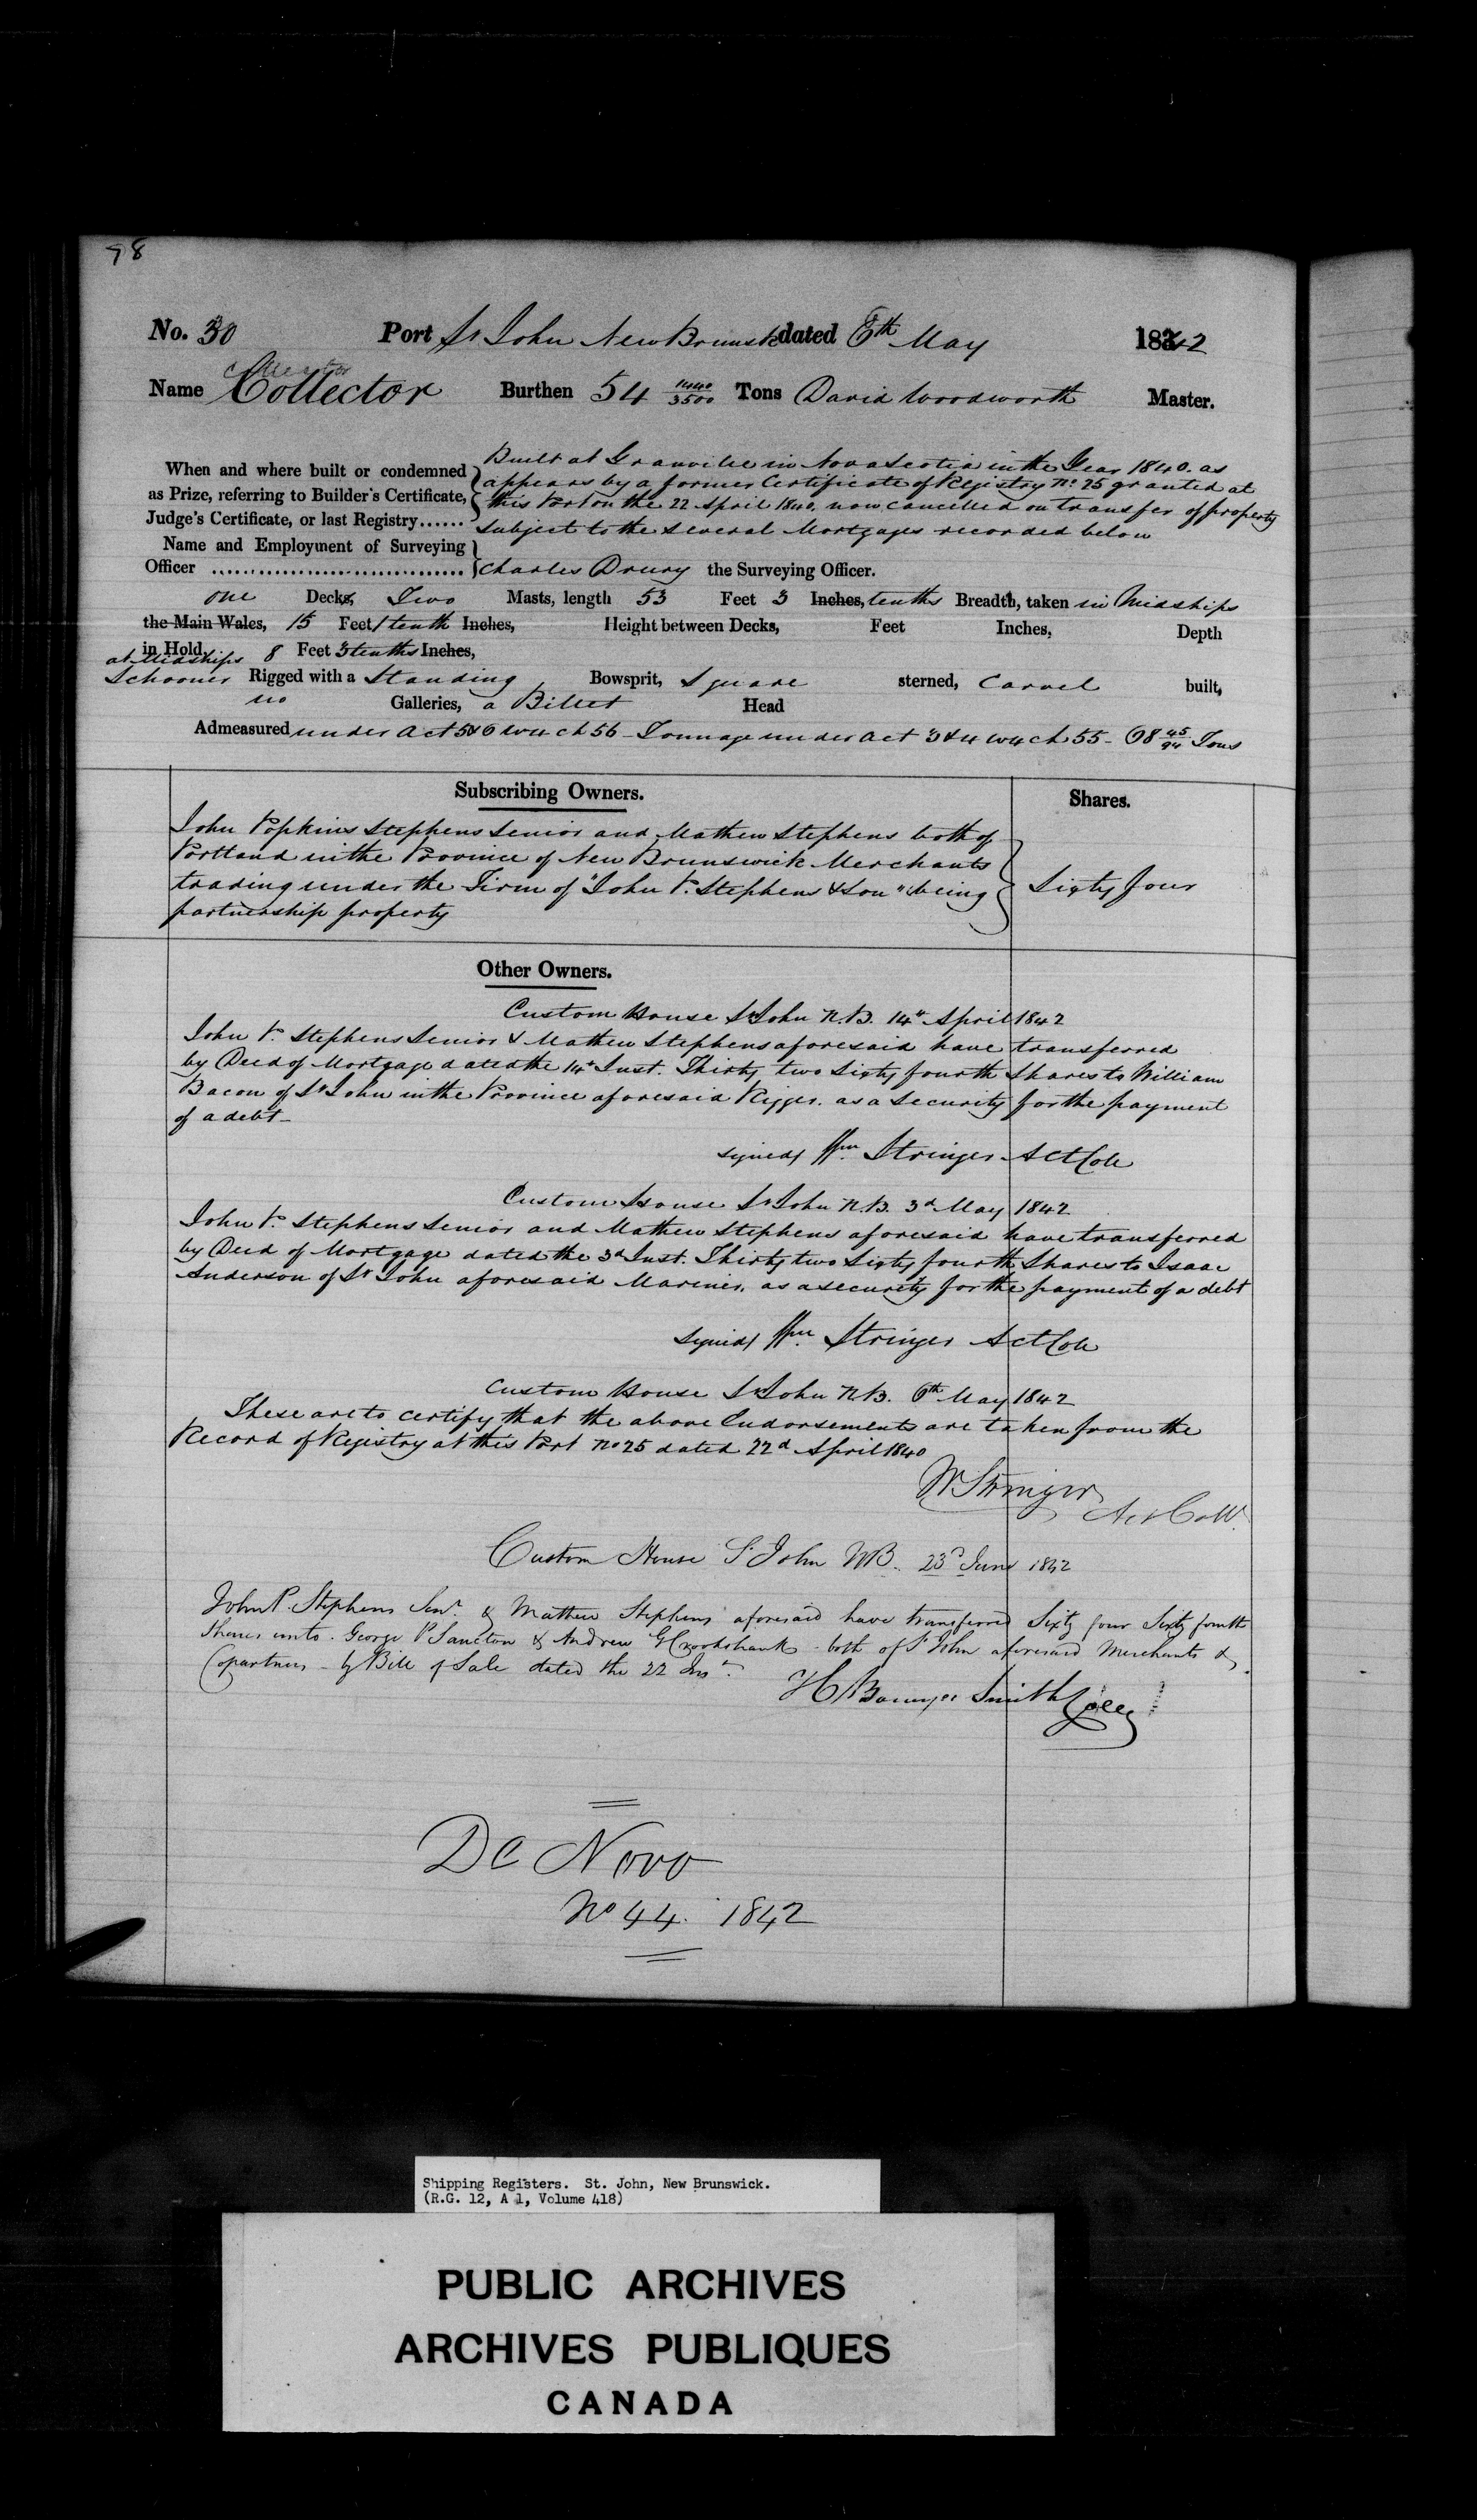 98
No. 30 Port St John New Brunsk dated 6th May 1842
Collector
Name Collector Burthen 54 1440/3500 Tons David Woodworth Master.
When and where built or condemned as Prize, referring to Builder's Certificate, Judge's Certificate, or last Registry......
Built at Granville in Nova Scotia in the Year 1840. as
appears by a former Certificate of Registry No. 25 granted at
this Port on the 22 April 1840. now cancelled on transfer of property
subject to the several Mortgages recorded below
Name and Employment of Surveying
Officer ................................ Charles Drury the Surveying Officer.
one Decks, Two Masts, length 53 Feet 3 Inches, tenths Breadth, taken in Midships
the Main Wales, 15 Feet 1 tenth Inches, Height between Decks, Feet Inches, Depth
in Hold, at Midships 8 Feet 3 tenths Inches,
Schooner Rigged with a Standing Bowsprit, Square sterned, Carvel built,
no Galleries, a Billet Head
Admeasured under Act 5&6 Wm 4 ch 56 - Tonnage under Act 3&4 Wm 4 ch 55 - 68 45/94 Tons
Subscribing Owners. Shares.
John Popkins Stephens Senior and Mathew Stephens both of
Portland in the Province of New Brunswick Merchants
trading under the Firm of "John P. Stephens & Son" being Sixty four
partnership property
Other Owners.
Custom House St John N.B. 14th April 1842
John P. Stephens Senior & Mathew Stephens aforesaid have transferred
by Deed of Mortgage dated the 14th Inst. Thirty two Sixty fourth Shares to William
Bacon of St John in the Province aforesaid Rigger. as a Security for the payment
of a debt -
signed Wm Stringer Act Coll
Custom House St John N.B. 3d May 1842
John P. Stephens Senior and Mathew Stephens aforesaid have transferred
by Deed of Mortgage dated the 3d Inst. Thirty two Sixty fourth Shares to Isaac
Anderson of St John aforesaid Mariner, as a security for the payment of a debt
signed Wm Stringer Act Coll
Custom House St John N.B. 6th May 1842
These are to certify that the above Endorsements are taken from the
Record of Registry at this Port No 25 dated 22d April 1840
W Stringer
Act Collr
Custom House St John NB. 23d June 1842
John P. Stephens Senr. & Mathew Stephens aforesaid have transferred Sixty four Sixty fourth
Shares unto George P Sancton & Andrew G Crookshank - both of St John aforesaid Merchants &
Copartners - by Bill of Sale dated the 22 Inst.
H Bowyer Smith Coll
De Novo
No 44. 1842
Shipping Registers. St. John, New Brunswick.
(R.G. 12, A 1, Volume 418)
PUBLIC ARCHIVES
ARCHIVES PUBLIQUES
CANADA